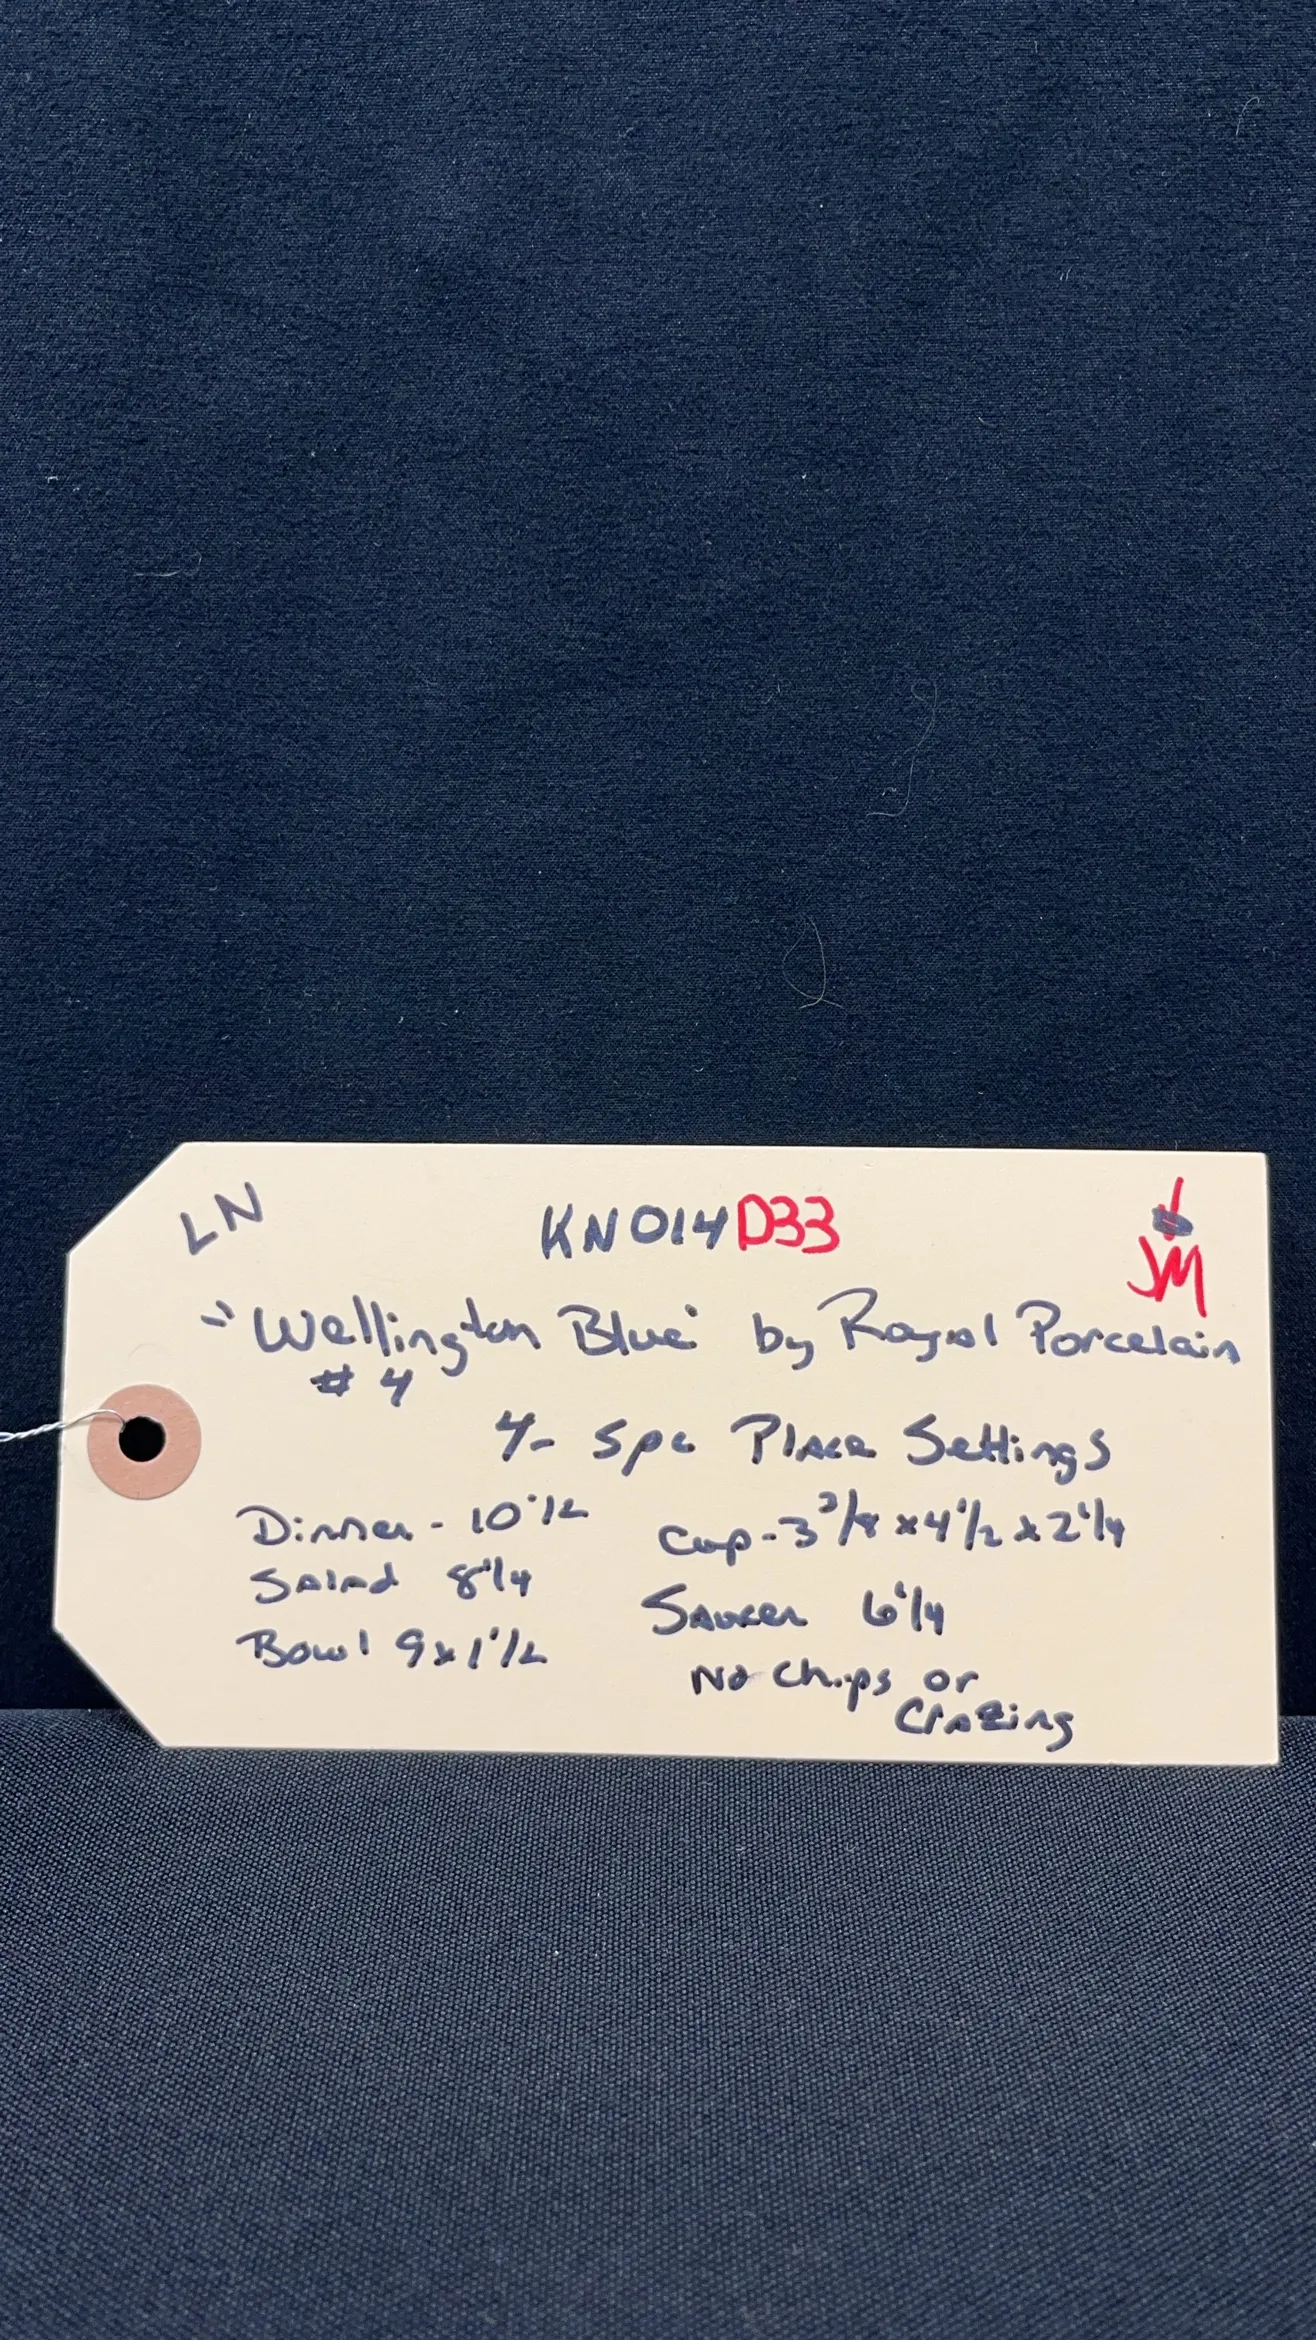 LN
KN014D33
JM
"Wellington Blue" by Royal Porcelain
# 4
4- 5pc Place Settings
Dinner - 10 1/2
Salad 8 1/4
Bowl 9 x 1 1/2
Cup - 3 3/8 x 4 1/2 x 2 1/4
Saucer 6 1/4
No Chips or
Crazing